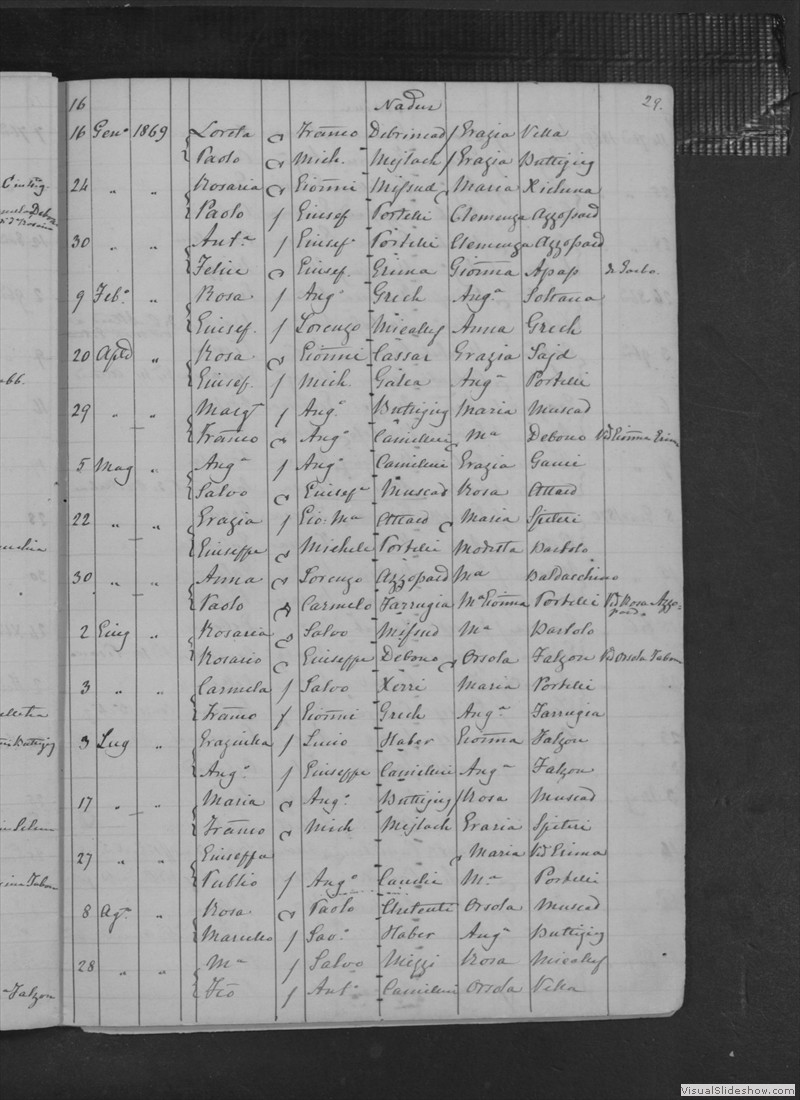 16 Nadur 29.
16 Genº 1869 Loreta Franco Debrincad / Grazia Vella
Paolo Mich. Mejlach / Grazia Buttigieg
24 " " Rosaria Gionni Mifsud Maria Xicluna
Paolo / Giusef Portelli Clemenza Azzopard
30 " " Antª / Giusef. Portelli Clemenza Azzopard
Felice Giusef. Grima Gionna Apap
9 Febº " Rosa / Angº Grech Angª Soltana
Giusef. / Lorenzo Micalef Anna Grech
20 Aple " Rosa Gionni Cassar Grazia Sajd
Giusef. / Mich. Galea Angª Portelli
29 " " Margt / Angº Buttigieg Maria Muscad
Franco Angº Camilleri Mª Debono Vid Gionna Grima
5 Mag " Angª / Angº Camilleri Grazia Gauci
Salvo Giusefª Muscad Rosa Attard
22 " " Grazia / Gio: Mª Attard Maria Spiteri
Giuseppe Michele Portelli Modesta Bartolo
30 " " Anna Lorenzo Azzopard Mª Baldacchino
Paolo Carmelo Farrugia Mª Gionna Portelli Vid Rosa Azzopard.
2 Giug " Rosaria Salvo Mifsud Mª Bartolo
Rosario Giuseppe Debono Orsola Falzon Vid Orsola
3 " " Carmela / Salvo Xerri Maria Portelli
Franco / Gionni Grech Angª Farrugia
3 Lug " Graziella / Lucio Haber Gionna Falzon
Angº / Giuseppe Camilleri Angª Falzon
17 " " Maria Angº Buttigieg / Rosa Muscad
Franco Mich Mejlach Grazia Spiteri
27 " " Giuseppa Maria Vid Grima
Publio / Angº Mª Portelli
8 Agº " Rosa Paolo Orsola Muscad
/ Savº Haber Angª Buttigieg
28 " " Mª / Salvo Mizzi Rosa Micalef
Fco / Antº Camilleri Orsola Vella
VisualSlideshow.com